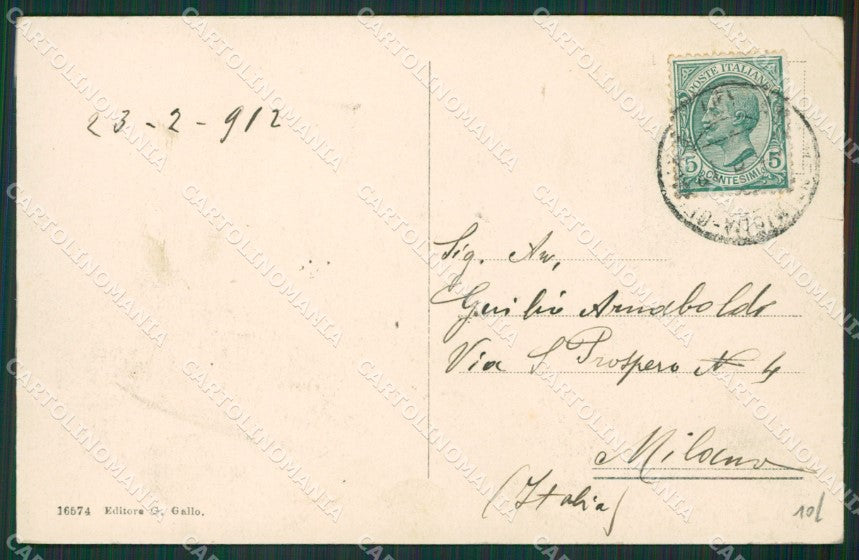 23-2-912
POSTE ITALIANE
5 CENTESIMI 5
Sig. Avv.
Giulio Arnaboldi
Via S Prospero N 4
Milano
(Italia)
16574 Editore G. Gallo.
10/
CARTOLINOMANIA